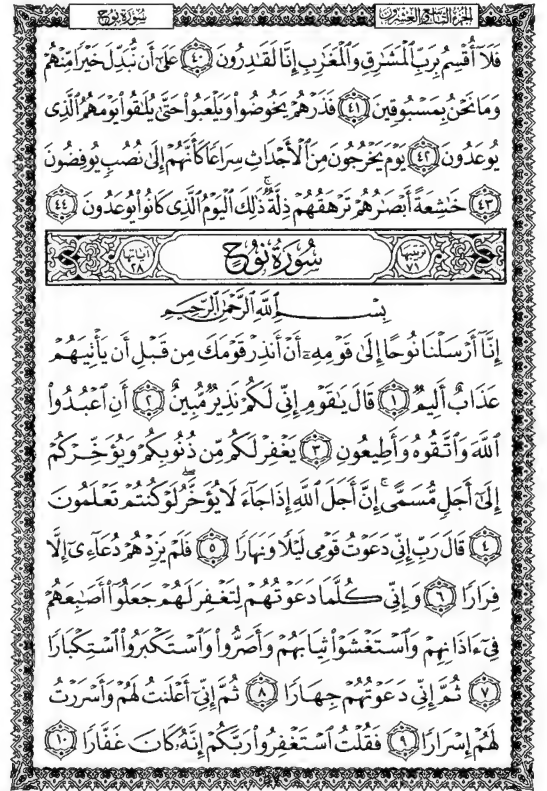 الجزء التاسع والعشرون
سورة نوح
فَلَآ أُقْسِمُ بِرَبِّ ٱلْمَشَٰرِقِ وَٱلْمَغَٰرِبِ إِنَّا لَقَٰدِرُونَ ۝٤٠ عَلَىٰٓ أَن نُّبَدِّلَ خَيْرًا مِّنْهُمْ
وَمَا نَحْنُ بِمَسْبُوقِينَ ۝٤١ فَذَرْهُمْ يَخُوضُوا۟ وَيَلْعَبُوا۟ حَتَّىٰ يُلَٰقُوا۟ يَوْمَهُمُ ٱلَّذِى
يُوعَدُونَ ۝٤٢ يَوْمَ يَخْرُجُونَ مِنَ ٱلْأَجْدَاثِ سِرَاعًا كَأَنَّهُمْ إِلَىٰ نُصُبٍ يُوفِضُونَ
۝٤٣ خَٰشِعَةً أَبْصَٰرُهُمْ تَرْهَقُهُمْ ذِلَّةٌ ۚ ذَٰلِكَ ٱلْيَوْمُ ٱلَّذِى كَانُوا۟ يُوعَدُونَ ۝٤٤
ترتيبها ٧١ سورة نوح آياتها ٢٨
بِسْمِ ٱللَّهِ ٱلرَّحْمَٰنِ ٱلرَّحِيمِ
إِنَّآ أَرْسَلْنَا نُوحًا إِلَىٰ قَوْمِهِۦٓ أَنْ أَنذِرْ قَوْمَكَ مِن قَبْلِ أَن يَأْتِيَهُمْ
عَذَابٌ أَلِيمٌ ۝١ قَالَ يَٰقَوْمِ إِنِّى لَكُمْ نَذِيرٌ مُّبِينٌ ۝٢ أَنِ ٱعْبُدُوا۟
ٱللَّهَ وَٱتَّقُوهُ وَأَطِيعُونِ ۝٣ يَغْفِرْ لَكُم مِّن ذُنُوبِكُمْ وَيُؤَخِّرْكُمْ
إِلَىٰٓ أَجَلٍ مُّسَمًّى ۚ إِنَّ أَجَلَ ٱللَّهِ إِذَا جَآءَ لَا يُؤَخَّرُ ۖ لَوْ كُنتُمْ تَعْلَمُونَ
۝٤ قَالَ رَبِّ إِنِّى دَعَوْتُ قَوْمِى لَيْلًا وَنَهَارًا ۝٥ فَلَمْ يَزِدْهُمْ دُعَآءِىٓ إِلَّا
فِرَارًا ۝٦ وَإِنِّى كُلَّمَا دَعَوْتُهُمْ لِتَغْفِرَ لَهُمْ جَعَلُوٓا۟ أَصَٰبِعَهُمْ
فِىٓ ءَاذَانِهِمْ وَٱسْتَغْشَوْا۟ ثِيَابَهُمْ وَأَصَرُّوا۟ وَٱسْتَكْبَرُوا۟ ٱسْتِكْبَارًا
۝٧ ثُمَّ إِنِّى دَعَوْتُهُمْ جِهَارًا ۝٨ ثُمَّ إِنِّىٓ أَعْلَنتُ لَهُمْ وَأَسْرَرْتُ
لَهُمْ إِسْرَارًا ۝٩ فَقُلْتُ ٱسْتَغْفِرُوا۟ رَبَّكُمْ إِنَّهُۥ كَانَ غَفَّارًا ۝١٠